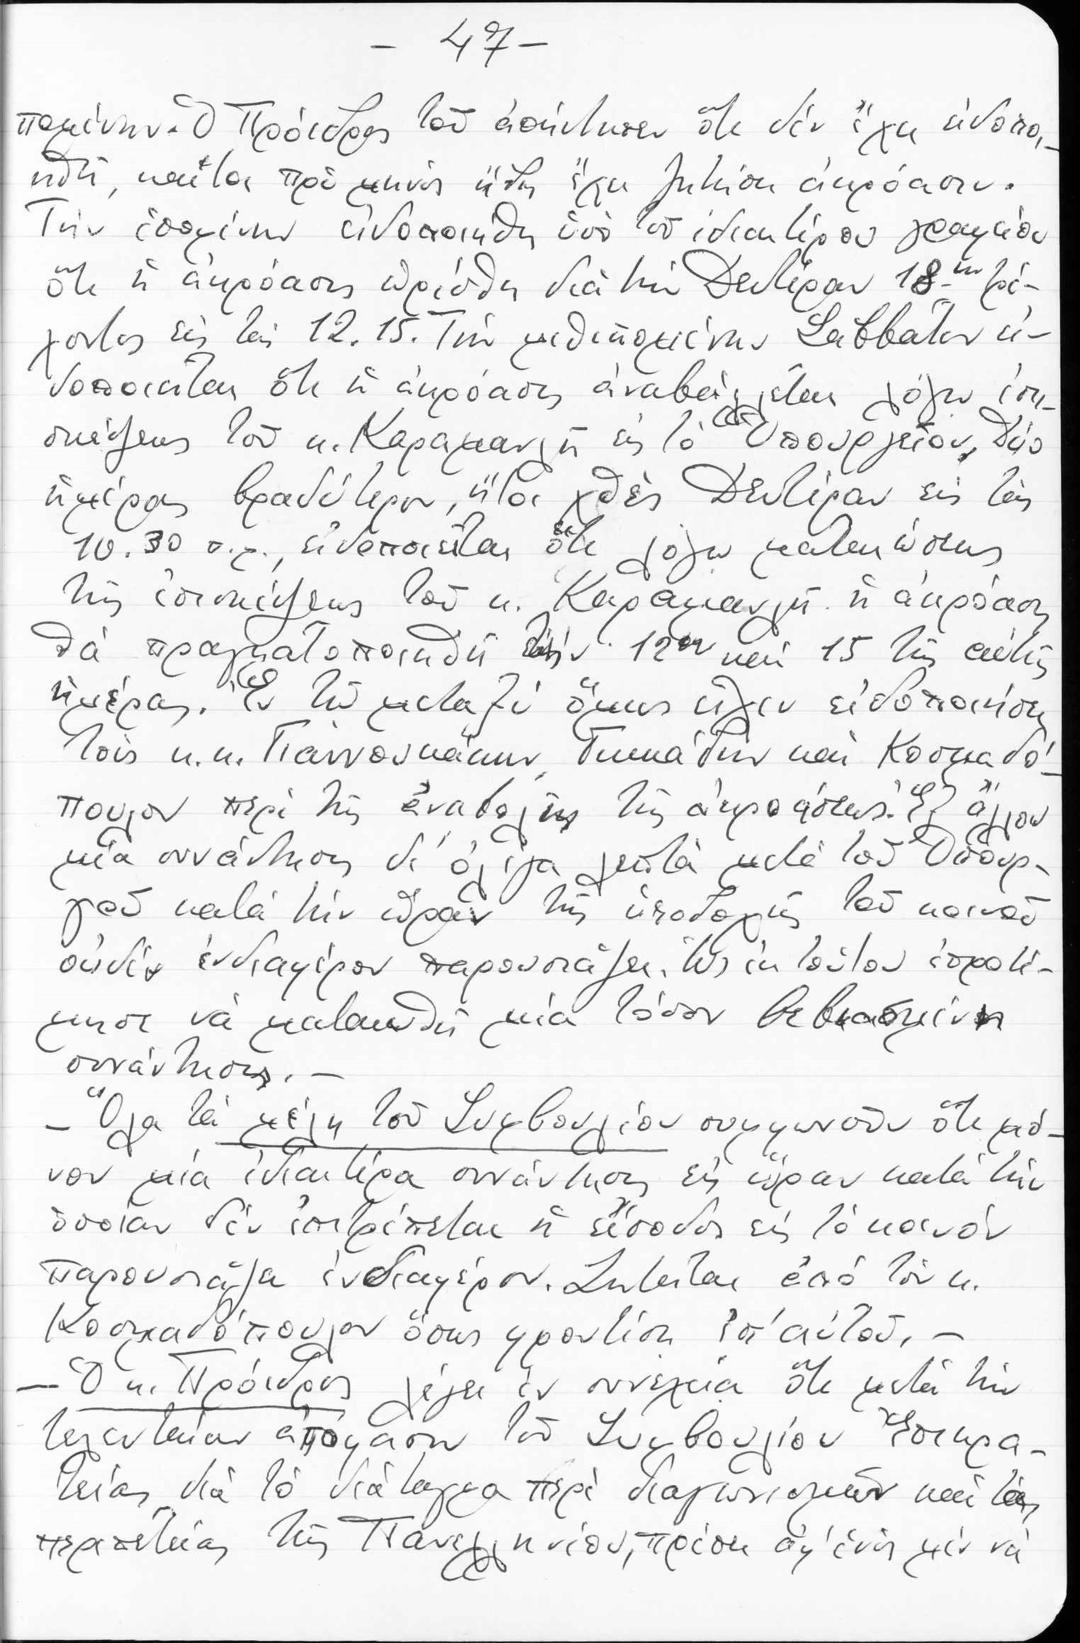 - 47 -
πομένην. Ὁ Πρόεδρος τοῦ ἀπήντησεν ὅτι δέν ἔχει εἰδοποι-
ηθῆ, καίτοι πρό μηνός ἤδη ἔχει ζητήσει ἀκρόασιν.
Τήν ἑπομένην εἰδοποιήθη ὑπό τοῦ ἰδιαιτέρου γραφείου
ὅτι ἡ ἀκρόασις ὡρίσθη διά τήν Δευτέραν 18ην τρέ-
χοντος εἰς τάς 12.15. Τήν μεθεπομένην Σάββατον εἰ-
δοποιεῖται ὅτι ἡ ἀκρόασις ἀναβάλλεται λόγῳ ἐπι-
σκέψεως τοῦ κ. Καραμανλῆ εἰς τό Ὑπουργεῖον, Δύο
ἡμέρας βραδύτερον, ἤτοι χθές Δευτέραν εἰς τάς
10.30 π.μ., εἰδοποιεῖται ὅτι λόγῳ ματαιώσεως
τῆς ἐπισκέψεως τοῦ κ. Καραμανλῆ ἡ ἀκρόασις
θά πραγματοποιηθῆ τήν 12ην καί 15 τῆς αὐτῆς
ἡμέρας. Ἐν τῷ μεταξύ ὅμως εἶχεν εἰδοποιήσει
τούς κ.κ. Γιαννουκάκην, καί Κοσμαδό-
πουλον περί τῆς ἀναβολῆς τῆς ἀκροάσεως. Ἐξ ἄλλου
μία συνάντησις δι' ὀλίγα λεπτά μετά τοῦ Ὑπουρ-
γοῦ κατά τήν ὥραν τῆς ὑποδοχῆς τοῦ κοινοῦ
οὐδέν ἐνδιαφέρον παρουσιάζει. Ὡς ἐκ τούτου ἐπροτί-
μησε νά ματαιωθῆ μία τόσον βεβιασμένη
συνάντησις. -
- Ὅλα τά μέλη τοῦ Συμβουλίου συμφωνοῦν ὅτι μό-
νον μία ἰδιαιτέρα συνάντησις εἰς ὥραν κατά τήν
ὁποίαν δέν ἐπιτρέπεται ἡ εἴσοδος εἰς τό κοινόν
παρουσιάζει ἐνδιαφέρον. Ζητεῖται ἀπό τόν κ.
Κοσμαδόπουλον ὅπως φροντίση ἐπ' αὐτοῦ. -
- Ὁ κ. Πρόεδρος λέγει ἐν συνεχείᾳ ὅτι μετά τήν
τελευταίαν ἀπόφασιν τοῦ Συμβουλίου Ἐπικρα-
τείας διά τό διάταγμα περί διαγωνισμῶν καί τάς
περιπετείας τῆς Πανελληνίου, πρέπει ἀφ' ἑνός μέν νά